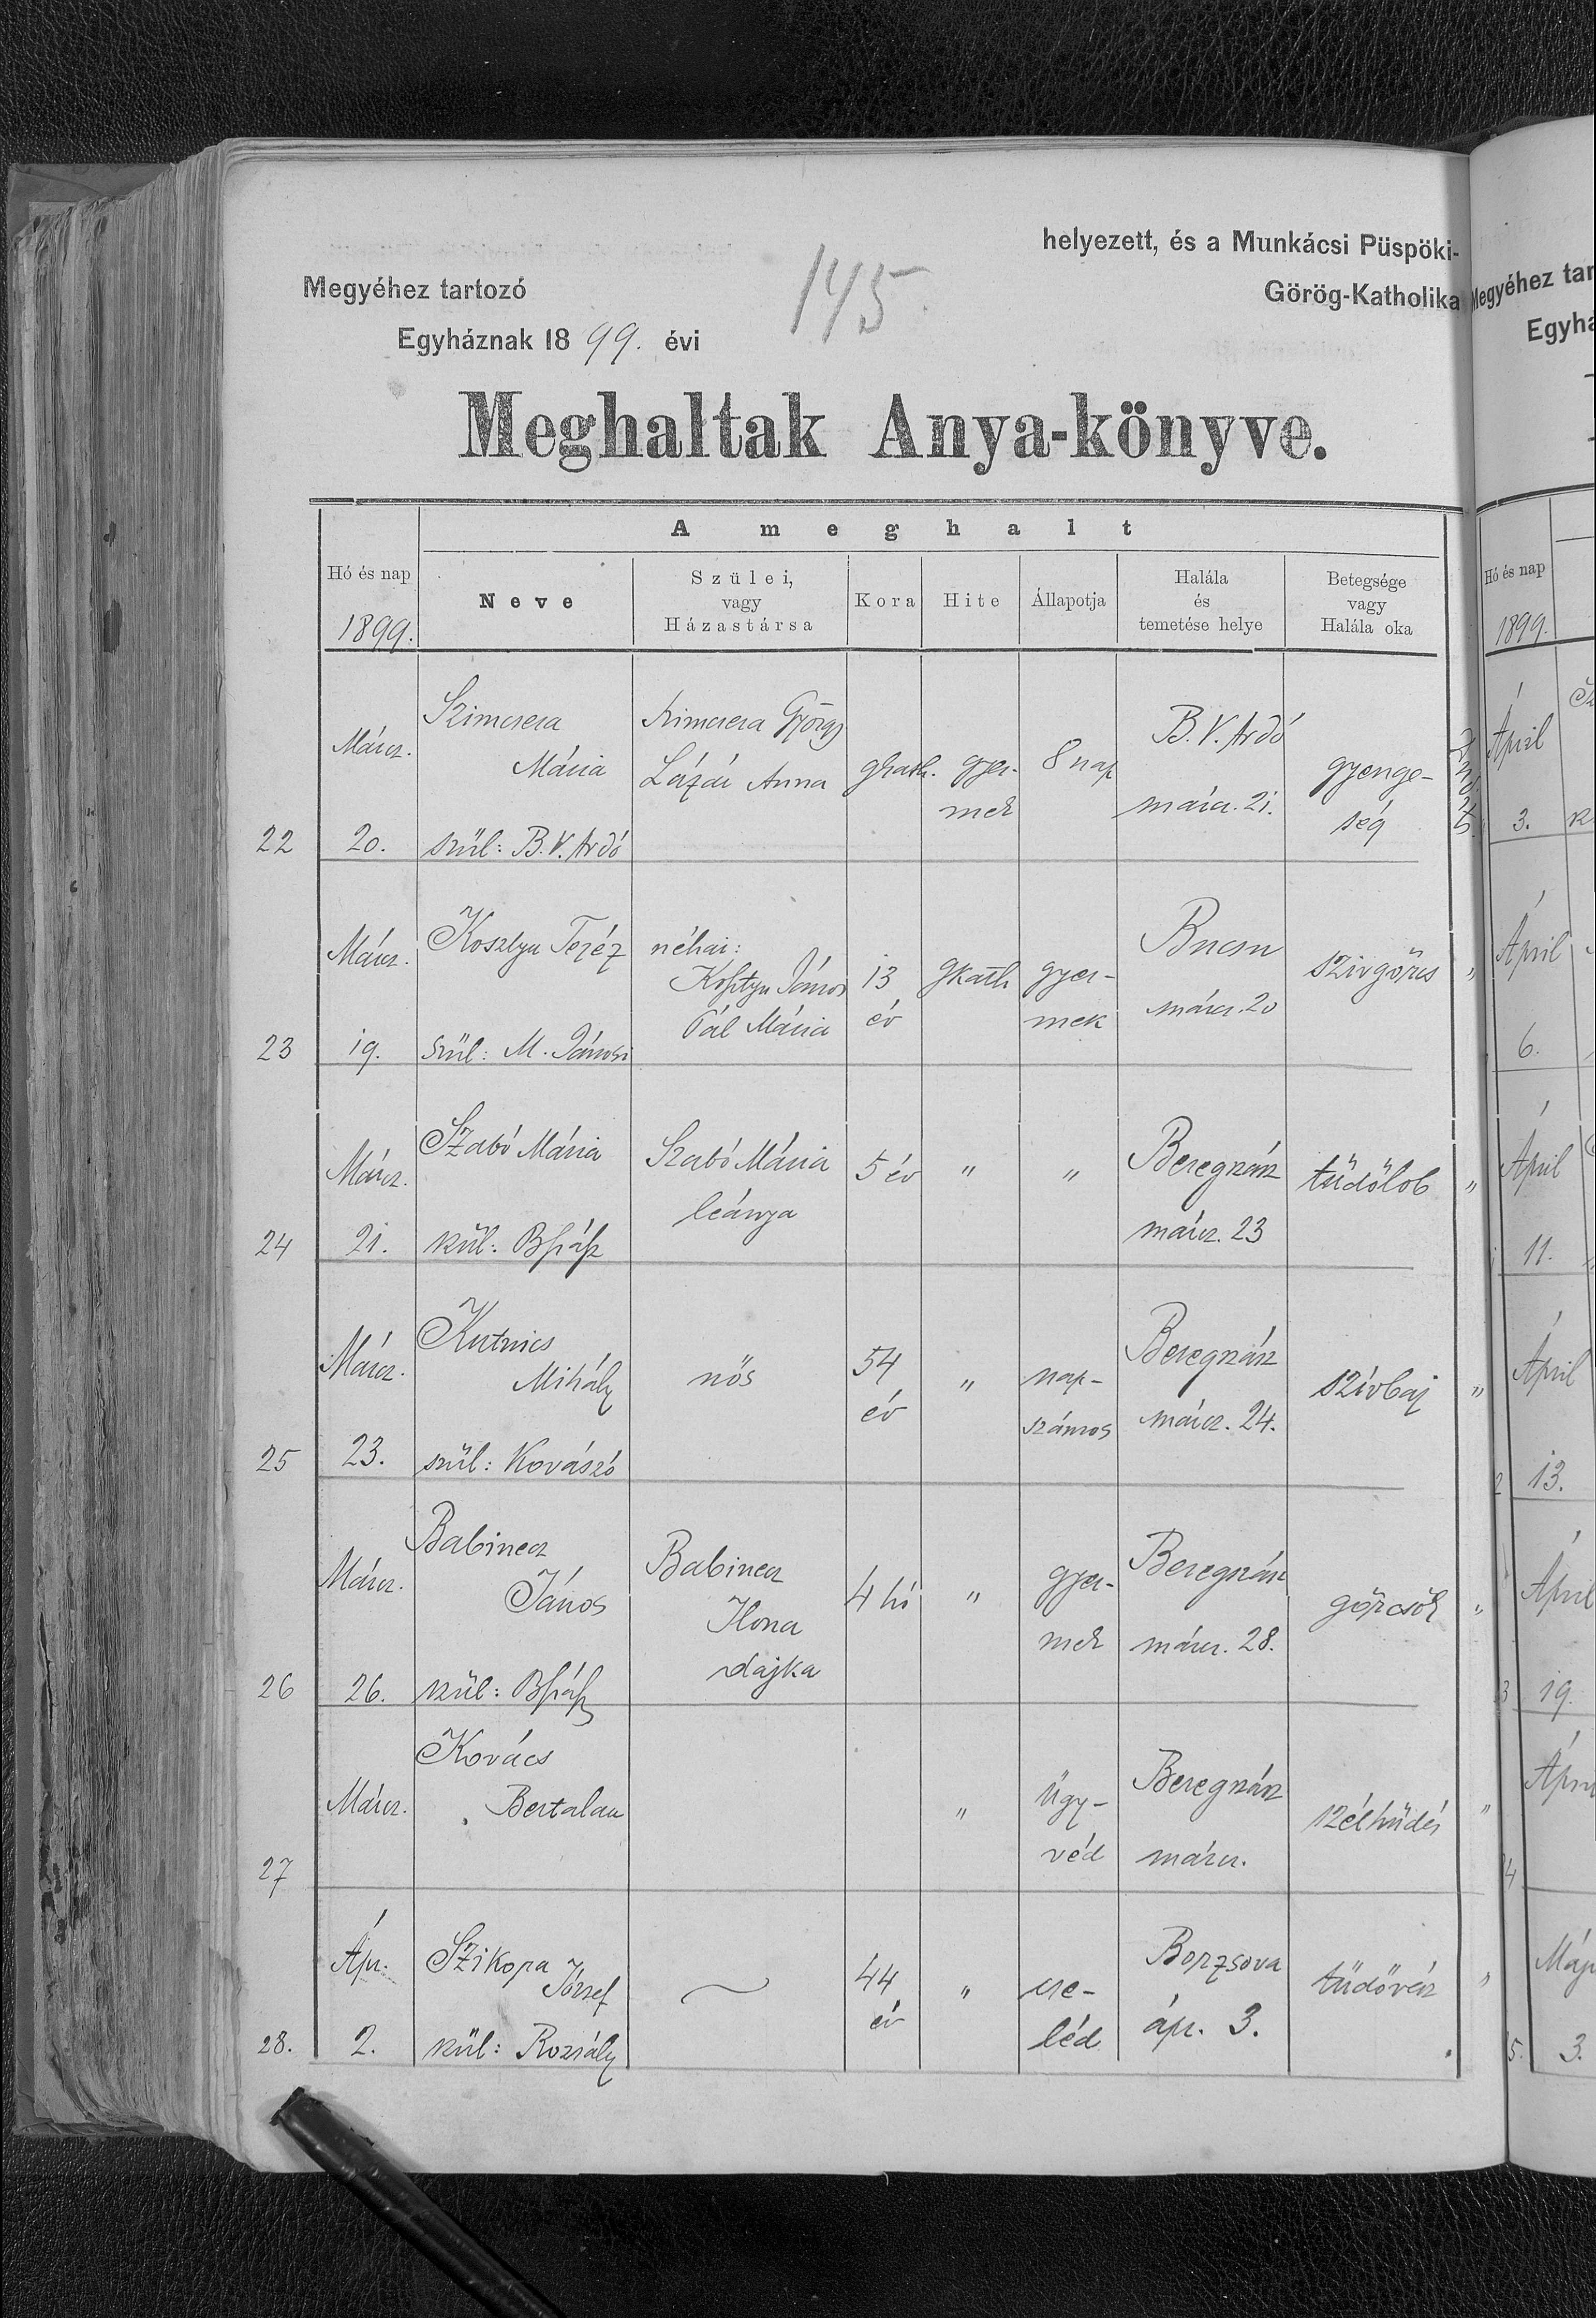 helyezett, és a Munkácsi Püspöki-
Megyéhez tartozó
145.
Görög-Katholika
Egyháznak 1899. évi
Meghaltak Anya-könyve.
A meghalt
Hó és nap
1899.
Neve
Szülei,
vagy
Házastársa
Kora
Hite
Állapotja
Halála
és
temetése helye
Betegsége
vagy
Halála oka
22
Márcz.
20.
Szimcsera
Mária
szül: B.V. Ardó
Szimcsera György
Lázár Anna
gkath.
gyer-
mek
8 nap
B.V. Ardó
márcz. 21.
gyenge-
ség
23
Márcz.
19.
Kosztyu Teréz
szül: M. Jánosi
néhai:
Kosztyu János
Pál Mária
13
év
gkath
gyer-
mek
Bucsu
márcz. 20
szivgörcs
"
24
Márcz.
21.
Szabó Mária
szül: Bszász
Szabó Mária
leánya
5 év
"
"
Beregszász
márcz. 23
tüdőlob
"
25
Márcz.
23.
Kutnics
Mihály
szül: Kovászó
nős
54
év
"
nap-
számos
Beregszász
márcz. 24.
szívbaj
"
26
Márcz.
26.
Babinecz
János
szül: Bszász
Babinecz
Ilona
dajka
4 hó
"
gyer-
mek
Beregszász
márcz. 28.
görcsök
"
27
Márcz.
Kovács
Bertalan
"
ügy-
véd
Beregszász
márcz.
szélhüdés
"
28.
Ápr.
2.
Szikora
József
szül: Rozsály
44
év
"
cse-
léd
Borzsova
ápr. 3.
tüdővész
"
Megyéhez tar
Egyhá
Hó és nap
1899.
Április
3.
Április
6.
Április
11.
Április
13.
Április
19.
Máj
3.